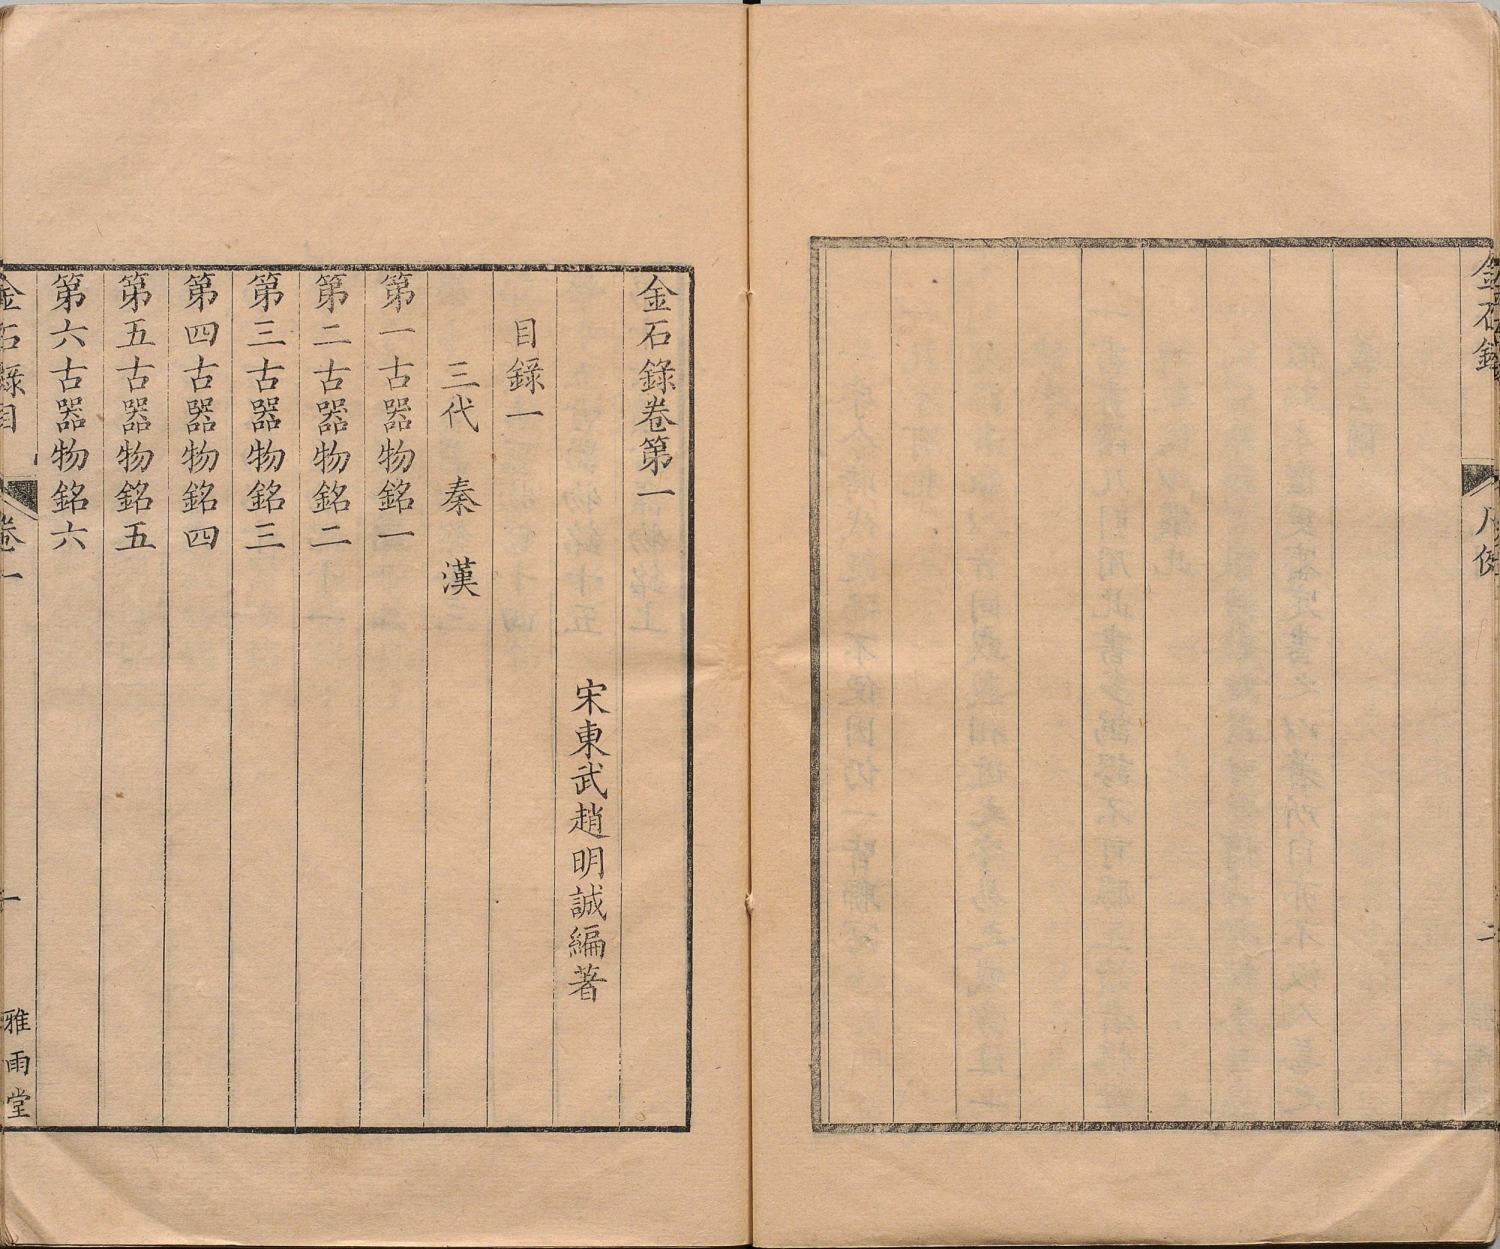 金石錄
凡例
二
金石錄卷第一
宋東武趙明誠編著
目錄一
三代　秦　漢
第一古器物銘一
第二古器物銘二
第三古器物銘三
第四古器物銘四
第五古器物銘五
第六古器物銘六
金石錄目
卷一
一
雅雨堂